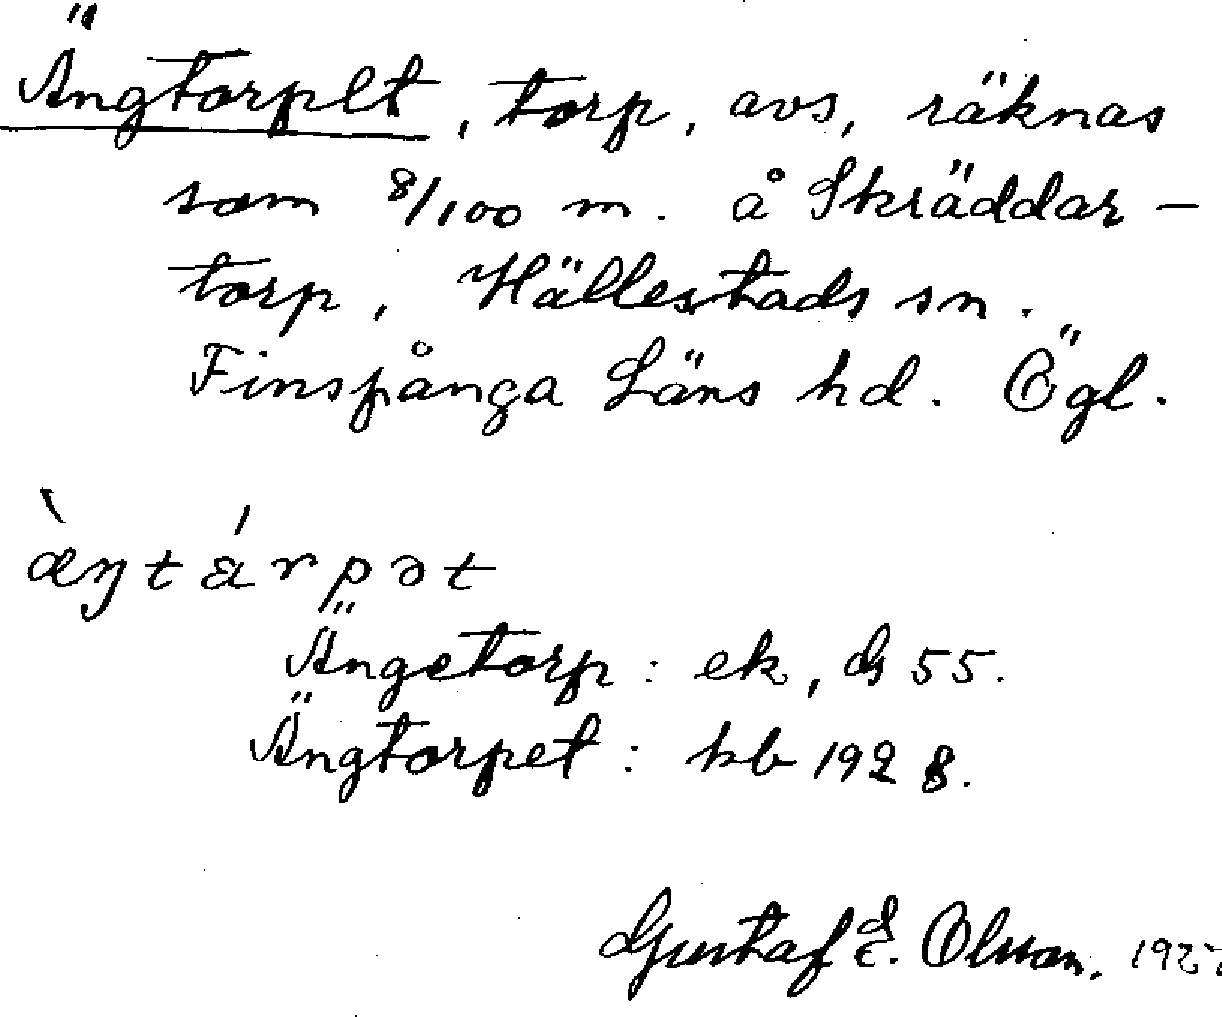 Ängtorpet, torp, avs, räknas
som 8/100 m. å Skräddar-
torp, Hällestads sn.
Finspånga Läns hd. Ögl.
æ̀ŋtárpət
Ängetorp: ek, ds 55.
Ängtorpet: kb 1928.
Gustaf E. Olsson.